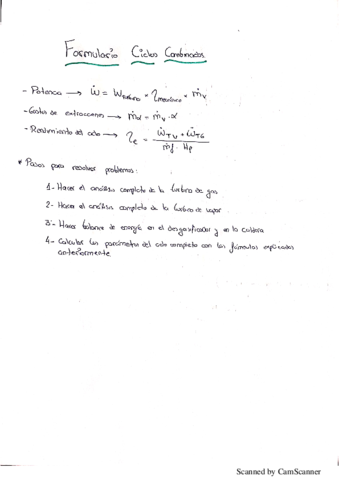 Formulario Ciclos Combinados
- Potencia → Ẇ = W_turbina · η_mecánico · ṁ_v
- Gastos de extracciones → ṁ_α = ṁ_v · α
- Rendimiento del ciclo → η_e = (Ẇ_TV + Ẇ_TG) / (ṁ_f · H_p)
* Pasos para resolver problemas:
1- Hacer el análisis completo de la turbina de gas
2- Hacer el análisis completo de la turbina de vapor
3- Hacer balance de energía en el desgasificador y en la caldera
4- Calcular los parámetros del ciclo completo con las fórmulas explicadas
anteriormente.
Scanned by CamScanner